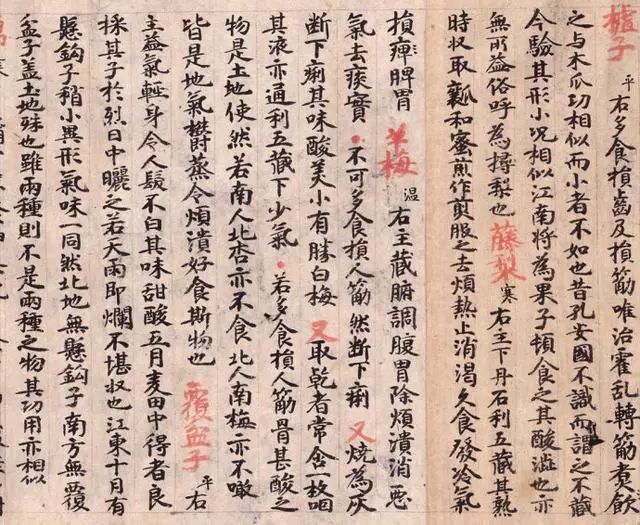 樝子 平 右多食損齒及損筋唯治霍乱轉筋煮飲
之与木瓜功相似而小者不如也昔孔安國不識而謂之不藏
今驗其形小况相似江南將為果子頓食之其酸澁也亦
無所益俗呼為㯶梨也 藤梨 寒 右主下丹石利五藏其熟
時収取瓤和蜜煎作煎服之去煩熱止消渴久食發冷氣
損痺脾胃 羊梅 温 右主藏腑調腹胃除煩潰消惡
氣去痰實 不可多食損人筋然断下痢 又 燒為灰
断下痢其味酸美小有勝白梅 又 取乾者常含一枚咽
其液亦通利五藏下少氣 若多食損人筋骨甚酸之
物是土地使然若南人北杏亦不食北人南梅亦不噉
皆是地氣欝蒸令煩潰好食斯物也 覆盆子 平 右
主益氣輕身令人髮不白其味甜酸五月麦田中得者良
採其子於烈日中曬之若天雨即爛不堪収也江東十月有
懸鈎子稍小異形氣味一同然北地無懸鈎子南方無覆
盆子盖土地殊也雖兩種則不是兩種之物其功用亦相似